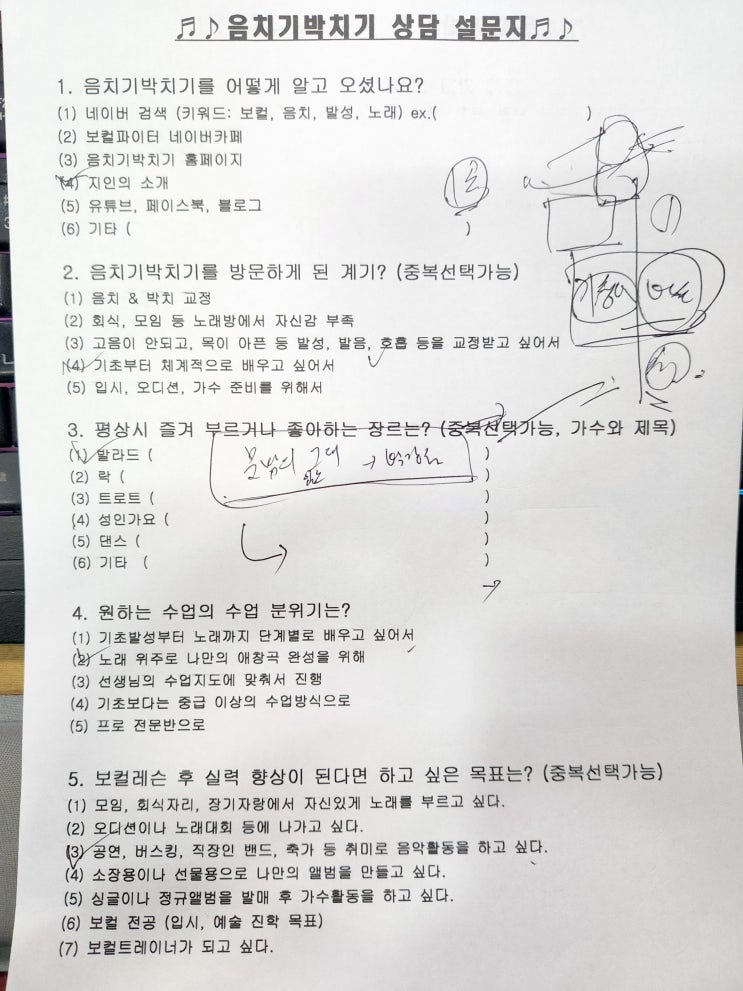 ♬♪음치기박치기 상담 설문지♬♪
1. 음치기박치기를 어떻게 알고 오셨나요?
(1) 네이버 검색 (키워드: 보컬, 음치, 발성, 노래) ex.( )
(2) 보컬파이터 네이버카페
(3) 음치기박치기 홈페이지
(4) 지인의 소개
(5) 유튜브, 페이스북, 블로그
(6) 기타 ( )
2. 음치기박치기를 방문하게 된 계기? (중복선택가능)
(1) 음치 & 박치 교정
(2) 회식, 모임 등 노래방에서 자신감 부족
(3) 고음이 안되고, 목이 아픈 등 발성, 발음, 호흡 등을 교정받고 싶어서
(4) 기초부터 체계적으로 배우고 싶어서
(5) 입시, 오디션, 가수 준비를 위해서
3. 평상시 즐겨 부르거나 좋아하는 장르는? (중복선택가능, 가수와 제목)
(1) 발라드 ( )
(2) 락 ( )
(3) 트로트 ( )
(4) 성인가요 ( )
(5) 댄스 ( )
(6) 기타 ( )
4. 원하는 수업의 수업 분위기는?
(1) 기초발성부터 노래까지 단계별로 배우고 싶어서
(2) 노래 위주로 나만의 애창곡 완성을 위해
(3) 선생님의 수업지도에 맞춰서 진행
(4) 기초보다는 중급 이상의 수업방식으로
(5) 프로 전문반으로
5. 보컬레슨 후 실력 향상이 된다면 하고 싶은 목표는? (중복선택가능)
(1) 모임, 회식자리, 장기자랑에서 자신있게 노래를 부르고 싶다.
(2) 오디션이나 노래대회 등에 나가고 싶다.
(3) 공연, 버스킹, 직장인 밴드, 축가 등 취미로 음악활동을 하고 싶다.
(4) 소장용이나 선물용으로 나만의 앨범을 만들고 싶다.
(5) 싱글이나 정규앨범을 발매 후 가수활동을 하고 싶다.
(6) 보컬 전공 (입시, 예술 진학 목표)
(7) 보컬트레이너가 되고 싶다.